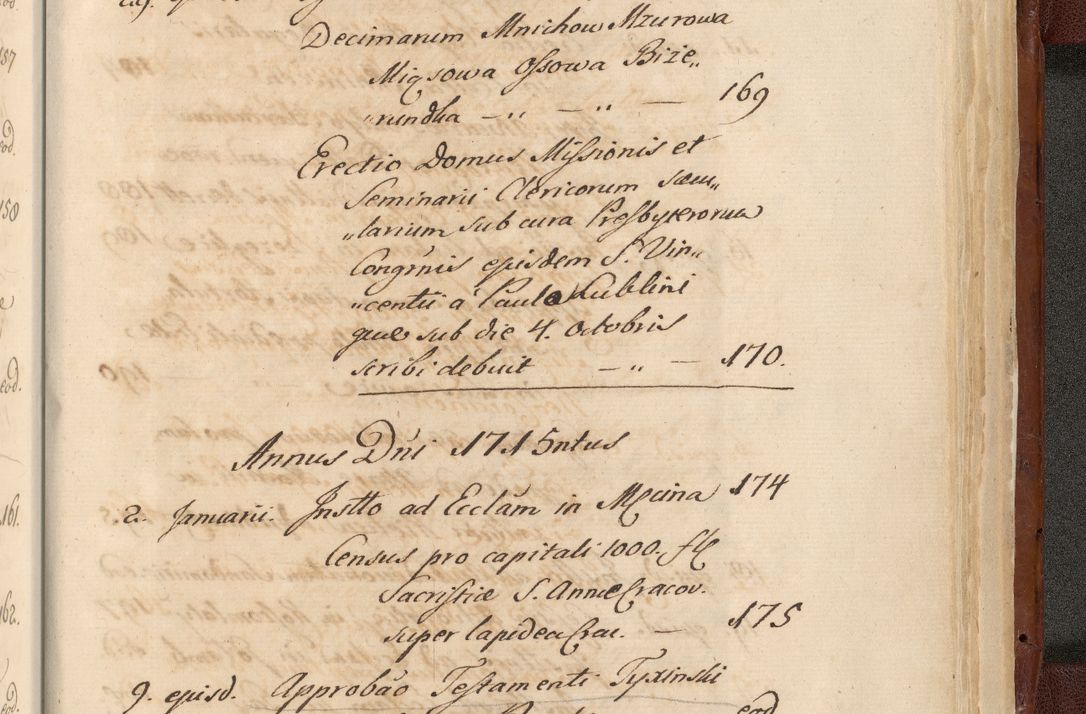 Decimarum Mnichow Mzurowa
Miąsowa Ossowa Biże„
„rundka — „ — „ — 169
Erectio Domus Missionis et
Seminarii Clericorum sæcu„
„larium sub cura Presbyterorum
Congrnis ejusdem S. Vin„
„centii a Paulo Lublini
quæ sub die 4. Octobris
scribi debuit — „ — 170.
Annus Dńi 1715ntus
2. Januarii. Instto ad Ecclam in Mecina 174
Census pro capitali 1000. fl
Sacristiæ S. Annæ Cracov.
super lapidea Crac. — 175
9. ejusd. Approbāo Testamenti Tyxinski
eod
157
eod.
158
eod.
161.
162.
eod